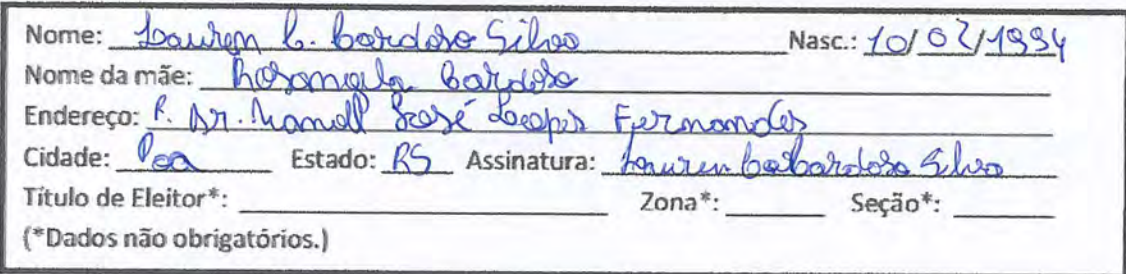 Nome: Lauren C. Cardoso Silva Nasc.: 10/02/1994
Nome da mãe: Rosangela Cardoso
Endereço: R. Dr. Manoel José Lopes Fernandes
Cidade: Poa Estado: RS Assinatura: Lauren Cardoso Silva
Título de Eleitor*: Zona*: Seção*:
(*Dados não obrigatórios.)